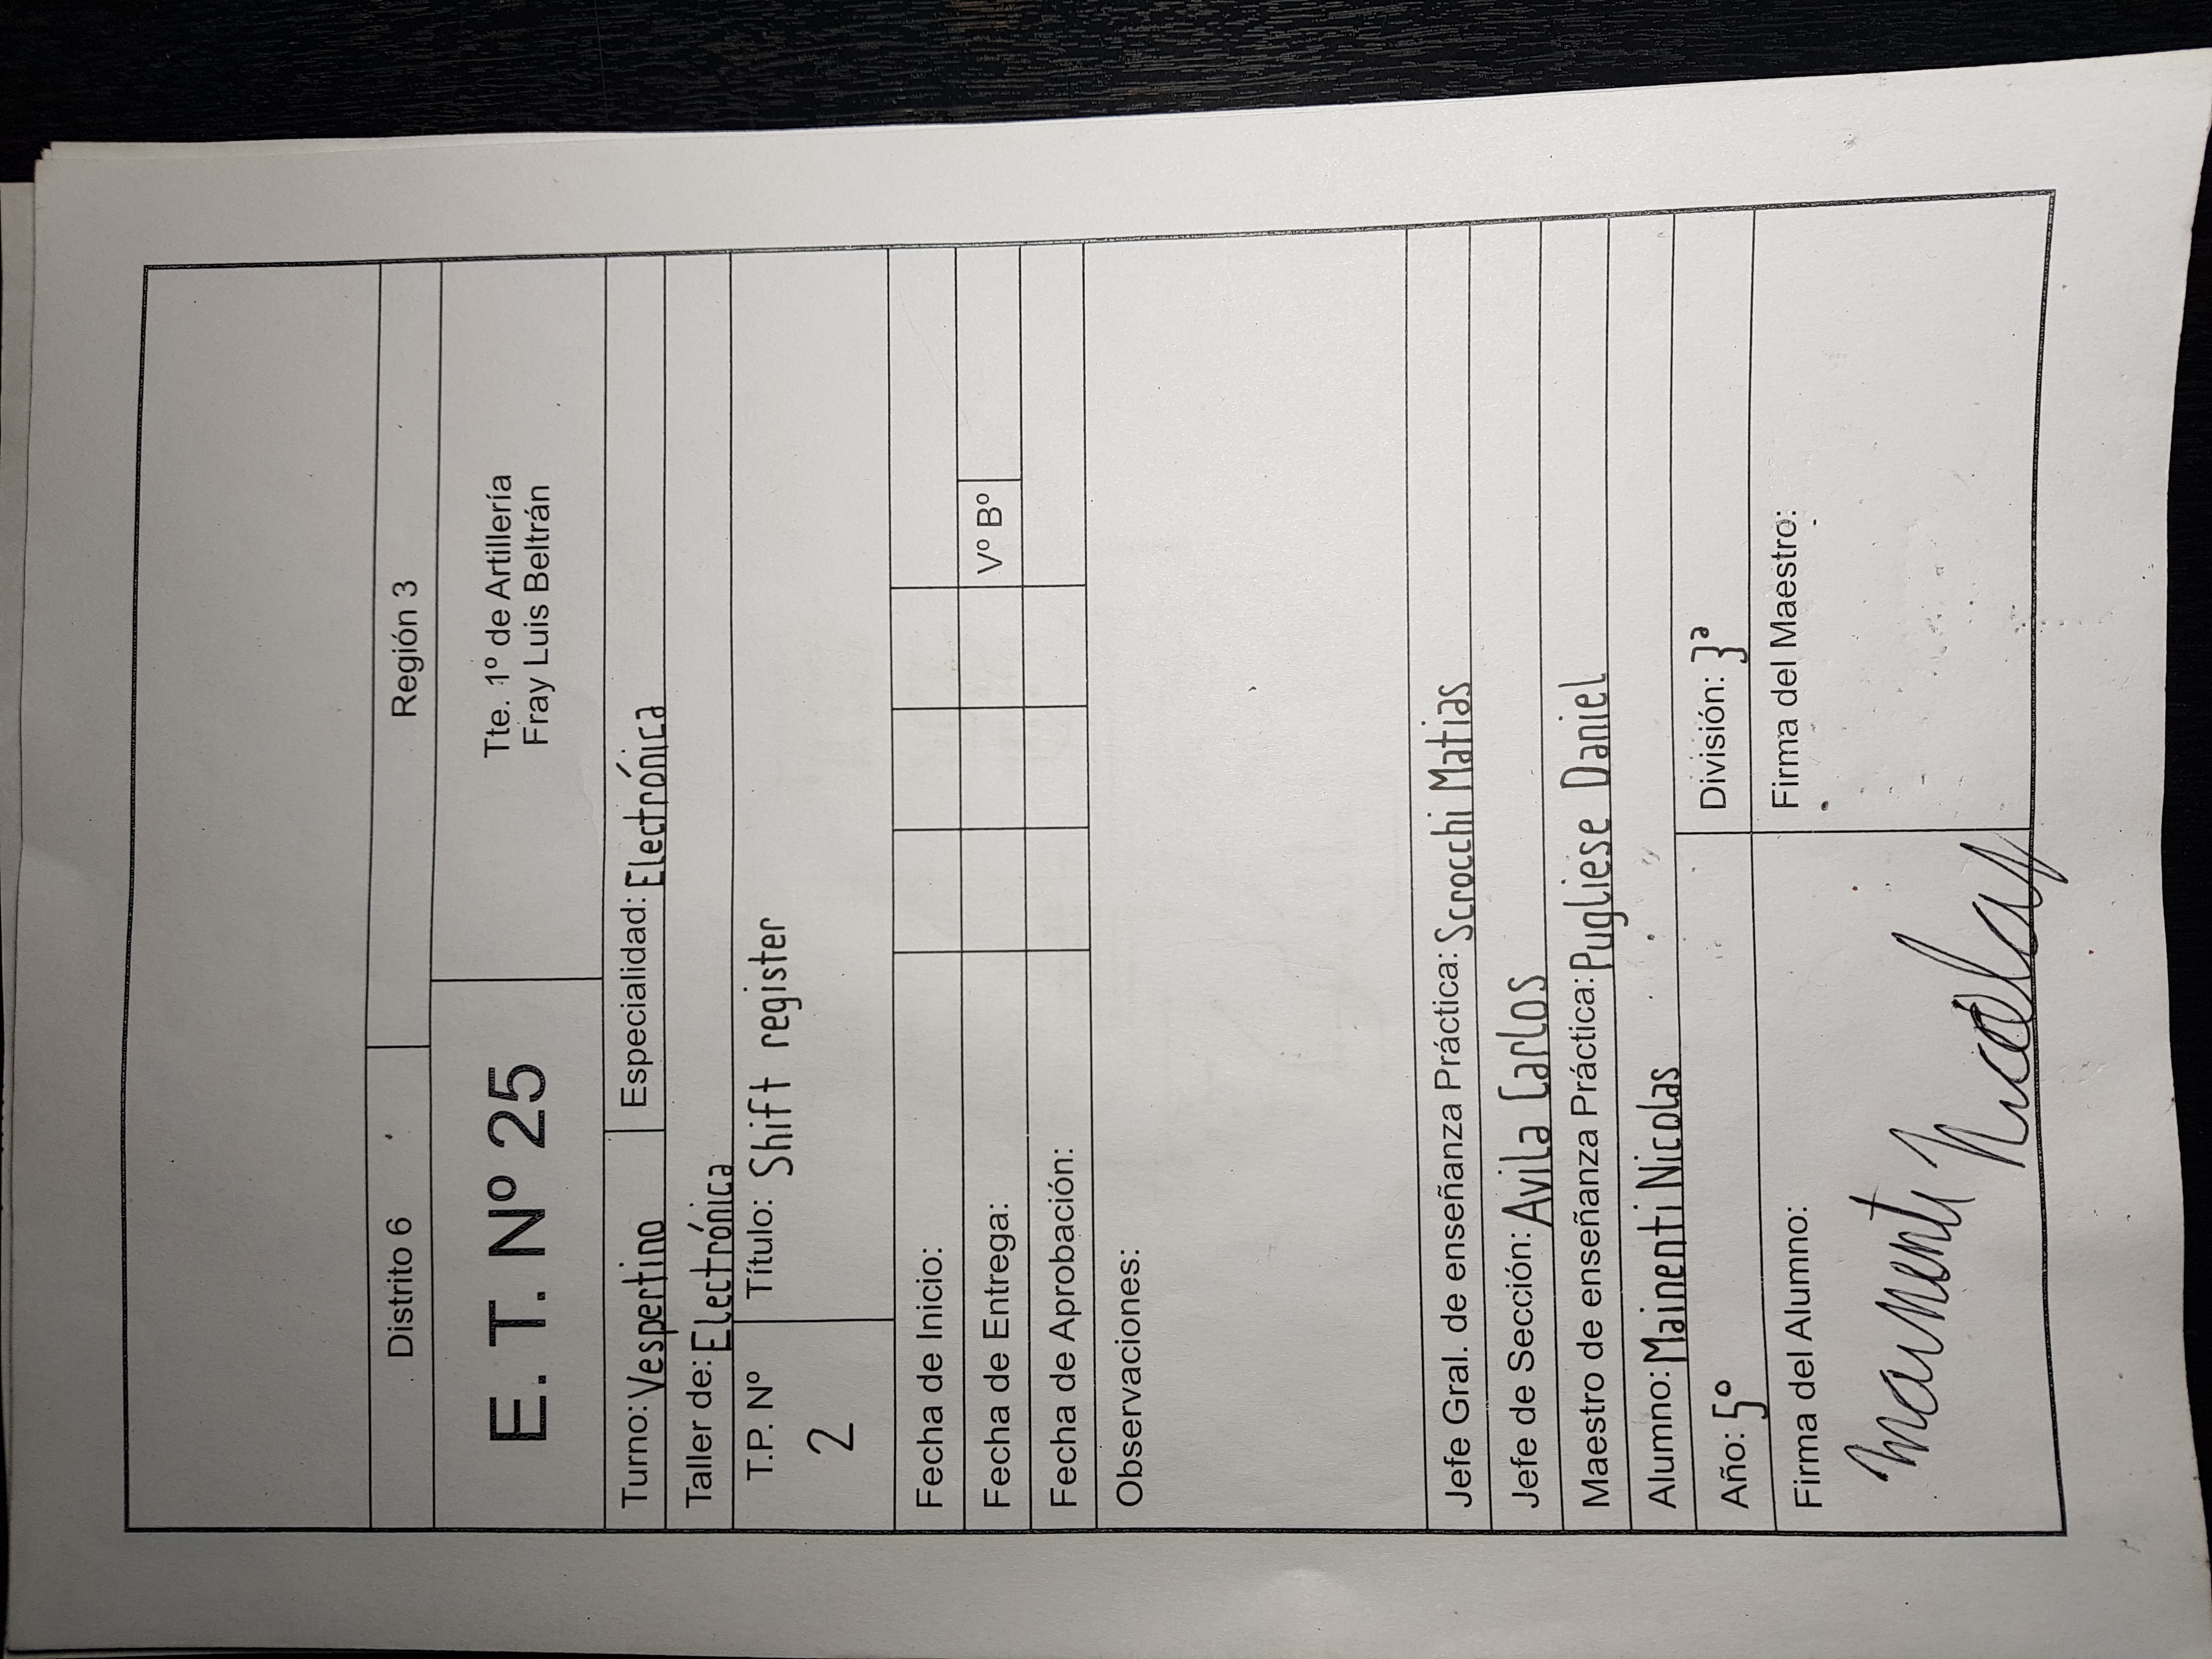 Distrito 6 Región 3
E. T. Nº 25
Tte. 1º de Artillería
Fray Luis Beltrán
Turno: Vespertino Especialidad: Electrónica
Taller de: Electrónica
T.P. Nº Título: Shift register
2
Fecha de Inicio:
Fecha de Entrega: Vº Bº
Fecha de Aprobación:
Observaciones:
Jefe Gral. de enseñanza Práctica: Scrocchi Matias
Jefe de Sección: Avila Carlos
Maestro de enseñanza Práctica: Pugliese Daniel
Alumno: Mainenti Nicolas
Año: 5º División: 3ª
Firma del Alumno: Firma del Maestro:
Mainenti Nicolas